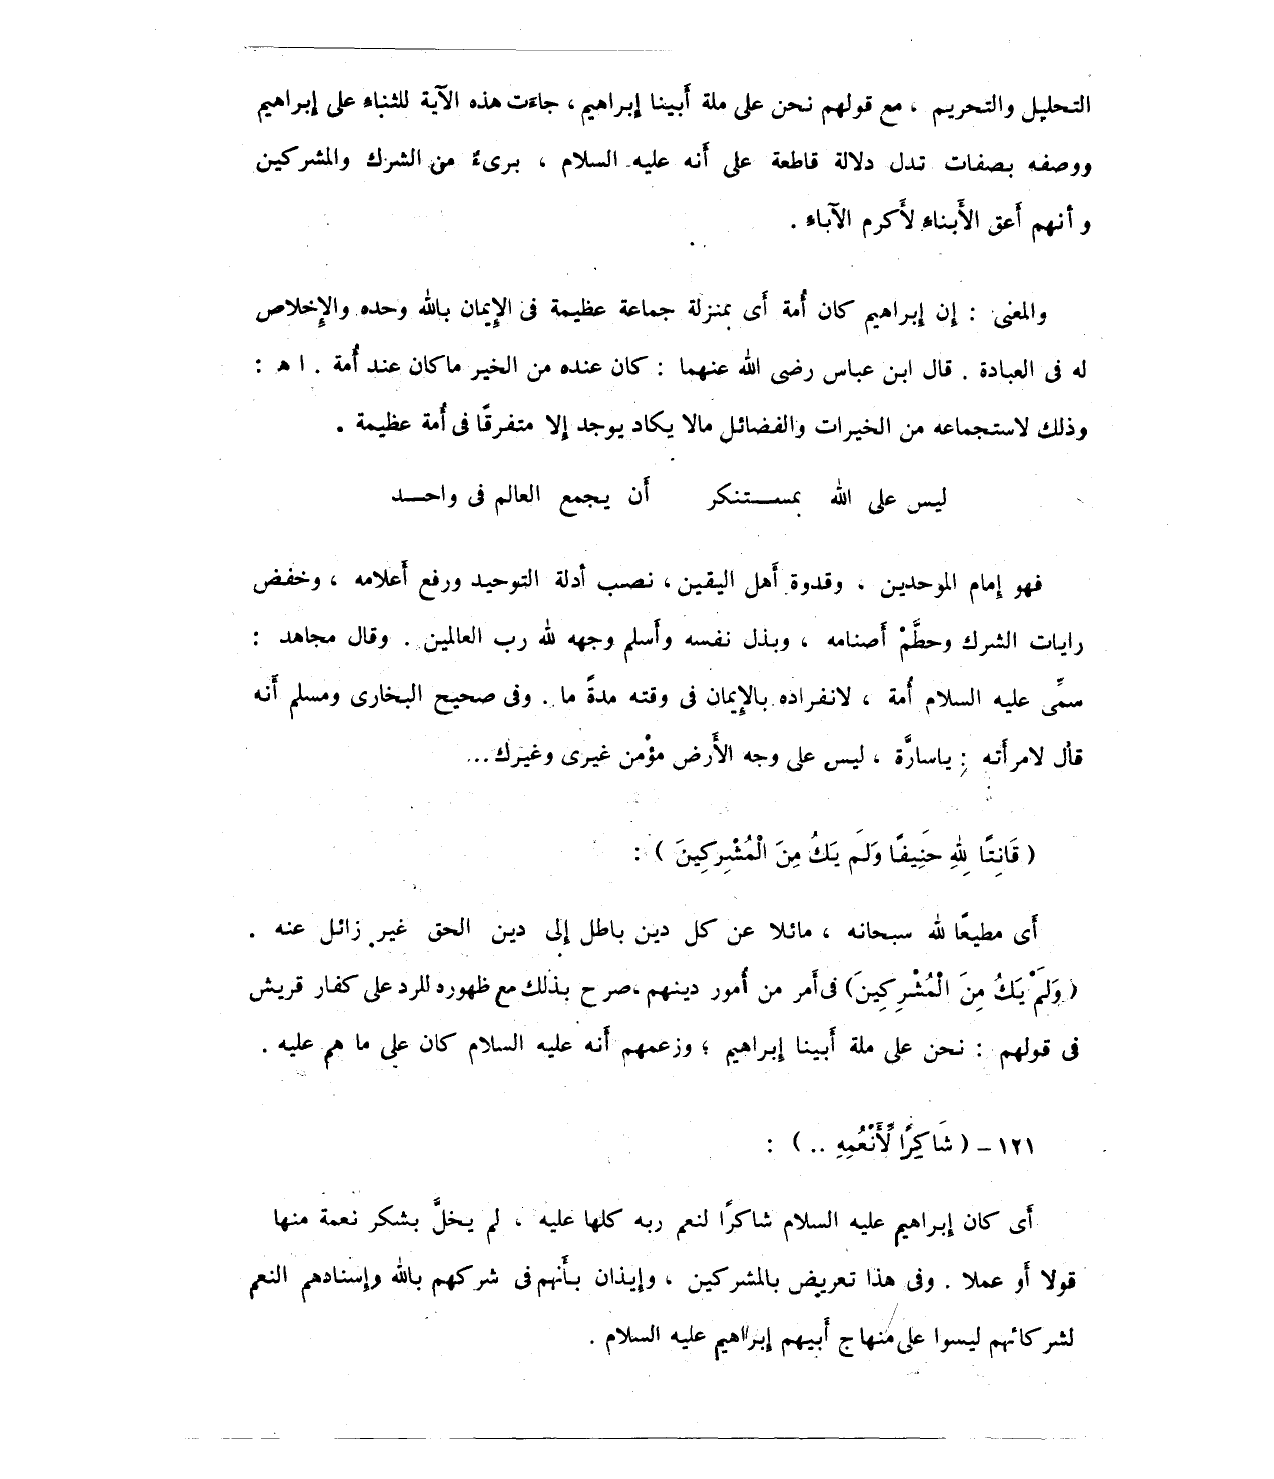 التحليل والتحريم ، مع قولهم نحن على ملة أَبينا إِبراهيم ، جاءَت هذه الآية للثناءِ على إِبراهيم
ووصفه بصفات تدل دلالة قاطعة على أَنه عليه السلام ، برىءٌ من الشرك والمشركين
وأنهم أَعق الأَبناءِ لأَكرم الآباء .
والمعنى : إِن إِبراهيم كان أُمة أَى بمنزلة جماعة عظيمة فى الإِيمان بالله وحده والإِخلاص
له فى العبادة . قال ابن عباس رضى الله عنهما : كان عنده من الخير ماكان عند أُمة . ا هـ :
وذلك لاستجماعه من الخيرات والفضائل مالا يكاد يوجد إلا متفرقًا فى أُمة عظيمة .
ليس على الله بمســتنكر أَن يجمع العالم فى واحــد
فهو إمام الموحدين ، وقدوة أَهل اليقين ، نصب أدلة التوحيد ورفع أَعلامه ، وخفض
رايات الشرك وحطَّمْ أَصنامه ، وبذل نفسه وأَسلم وجهه لله رب العالمين . وقال مجاهد :
سمِّى عليه السلام أُمة ، لانفراده بالإِيمان فى وقته مدةً ما . وفى صحيح البخارى ومسلم أَنه
قال لامرأَته : ياسارَّة ، ليس على وجه الأَرض مؤْمن غيرى وغيرك...
( قَانِتًا لِلهِ حَنِيفًا وَلَمَ يَكُ مِنَ الْمُشْرِكِينَ ) :
أَى مطيعًا لله سبحانه ، مائلا عن كل دين باطل إِلى دين الحق غير زائل عنه .
( وَلَمَْ يَكُ مِنَ الْمُشْرِكِينَ) فى أَمر من أُمور دينهم ،صرح بذلك مع ظهوره للرد على كفار قريش
فى قولهم : نحن على ملة أَبينا إِبراهيم ؛ وزعمهم أَنه عليه السلام كان على ما هم عليه .
١٢١ - ( شَاكِرًا لِّأَنْعُمِهِ .. ) :
أَى كان إِبراهيم عليه السلام شاكرًا لنعم ربه كلها عليه ، لم يخلَّ بشكر نعمة منها
قولا أَو عملا . وفى هذا تعريض بالمشركين ، وإيذان بأَنهم فى شركهم بالله وإسنادهم النعم
لشركائهم ليسوا على منهاج أَبيهم إِبراهيم عليه السلام .